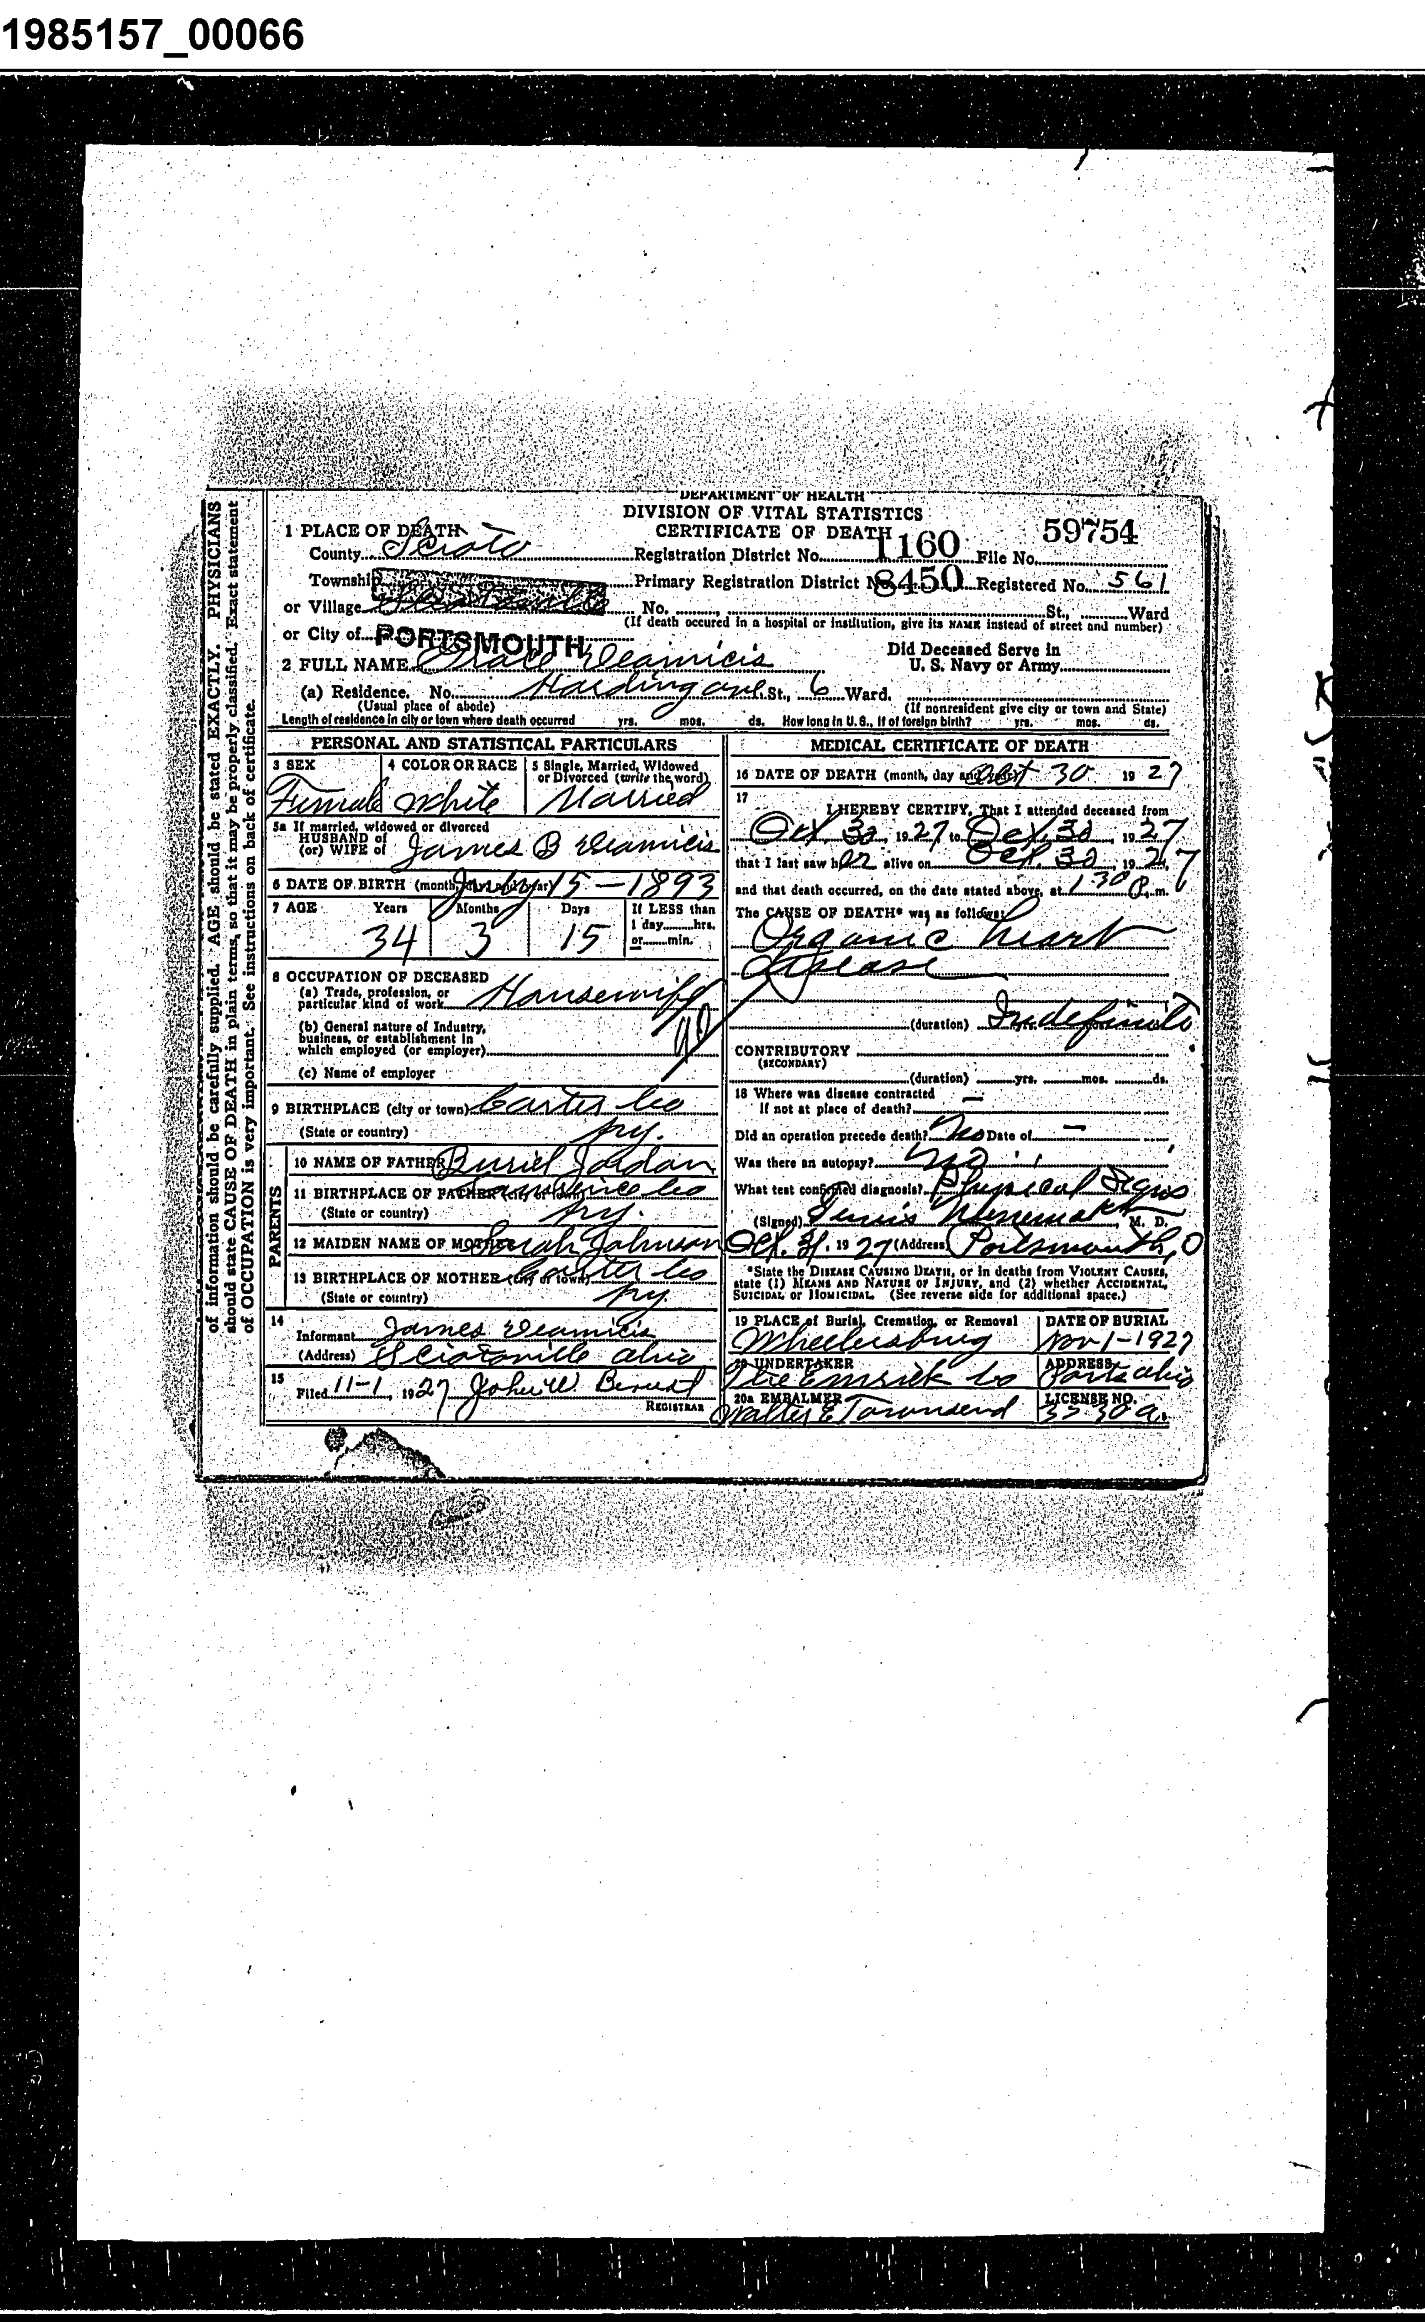 1985157_00066
DEPARTMENT OF HEALTH
DIVISION OF VITAL STATISTICS
CERTIFICATE OF DEATH
59754
1 PLACE OF DEATH
County Scioto Registration District No. 1160 File No.
Township Primary Registration District No. 8450 Registered No. 561
or Village No. St., Ward
(If death occured in a hospital or institution, give its NAME instead of street and number)
or City of PORTSMOUTH
Did Deceased Serve in
U. S. Navy or Army
2 FULL NAME Grace Deamicis
(a) Residence. No. Harding ave St., 6 Ward.
(Usual place of abode) (If nonresident give city or town and State)
Length of residence in city or town where death occurred yrs. mos. ds. How long in U. S., if of foreign birth? yrs. mos. ds.
PERSONAL AND STATISTICAL PARTICULARS
3 SEX 4 COLOR OR RACE 5 Single, Married, Widowed
or Divorced (write the word)
Female White Married
5a If married, widowed or divorced
HUSBAND of
(or) WIFE of James B Deamicis
6 DATE OF BIRTH (month, day and year) July 15-1893
7 AGE Years Months Days If LESS than
1 day hrs.
or min.
34 3 15
8 OCCUPATION OF DECEASED
(a) Trade, profession, or
particular kind of work Housewife
(b) General nature of Industry,
business, or establishment in
which employed (or employer)
(c) Name of employer
9 BIRTHPLACE (city or town) Carter Co
(State or country) Ky.
PARENTS
10 NAME OF FATHER Buriel Jordan
11 BIRTHPLACE OF FATHER (city or town) Lawrence Co
(State or country) Ky.
12 MAIDEN NAME OF MOTHER Sarah Johnson
13 BIRTHPLACE OF MOTHER (city or town) Carter Co
(State or country) Ky.
14
Informant James Deamicis
(Address) Sciotoville Ohio
15
Filed 11-1, 1927 John W.
REGISTRAR
MEDICAL CERTIFICATE OF DEATH
16 DATE OF DEATH (month, day and year) Oct 30 1927
17
I HEREBY CERTIFY, That I attended deceased from
Oct 30, 1927, to Oct 30, 1927
that I last saw her alive on Oct 30, 1927
and that death occurred, on the date stated above, at 1 30 P. m.
The CAUSE OF DEATH* was as follows:
Organic heart
disease
(duration) Indefinite
CONTRIBUTORY
(SECONDARY)
(duration) yrs. mos. ds.
18 Where was disease contracted
if not at place of death? —
Did an operation precede death? No Date of —
Was there an autopsy? No
What test confirmed diagnosis? Physical Signs
(Signed) M. D.
Oct. 31, 1927 (Address) Portsmouth, O
*State the DISEASE CAUSING DEATH, or in deaths from VIOLENT CAUSES,
state (1) MEANS AND NATURE OF INJURY, and (2) whether ACCIDENTAL,
SUICIDAL or HOMICIDAL. (See reverse side for additional space.)
19 PLACE of Burial, Cremation, or Removal DATE OF BURIAL
Wheelersburg Nov 1-1927
20 UNDERTAKER ADDRESS
The Emrick Co Ports Ohio
20a EMBALMER LICENSE NO.
Walter E Townsend 3330a.
of information should be carefully supplied. AGE should be stated EXACTLY. PHYSICIANS
should state CAUSE OF DEATH in plain terms, so that it may be properly classified. Exact statement
of OCCUPATION is very important. See instructions on back of certificate.